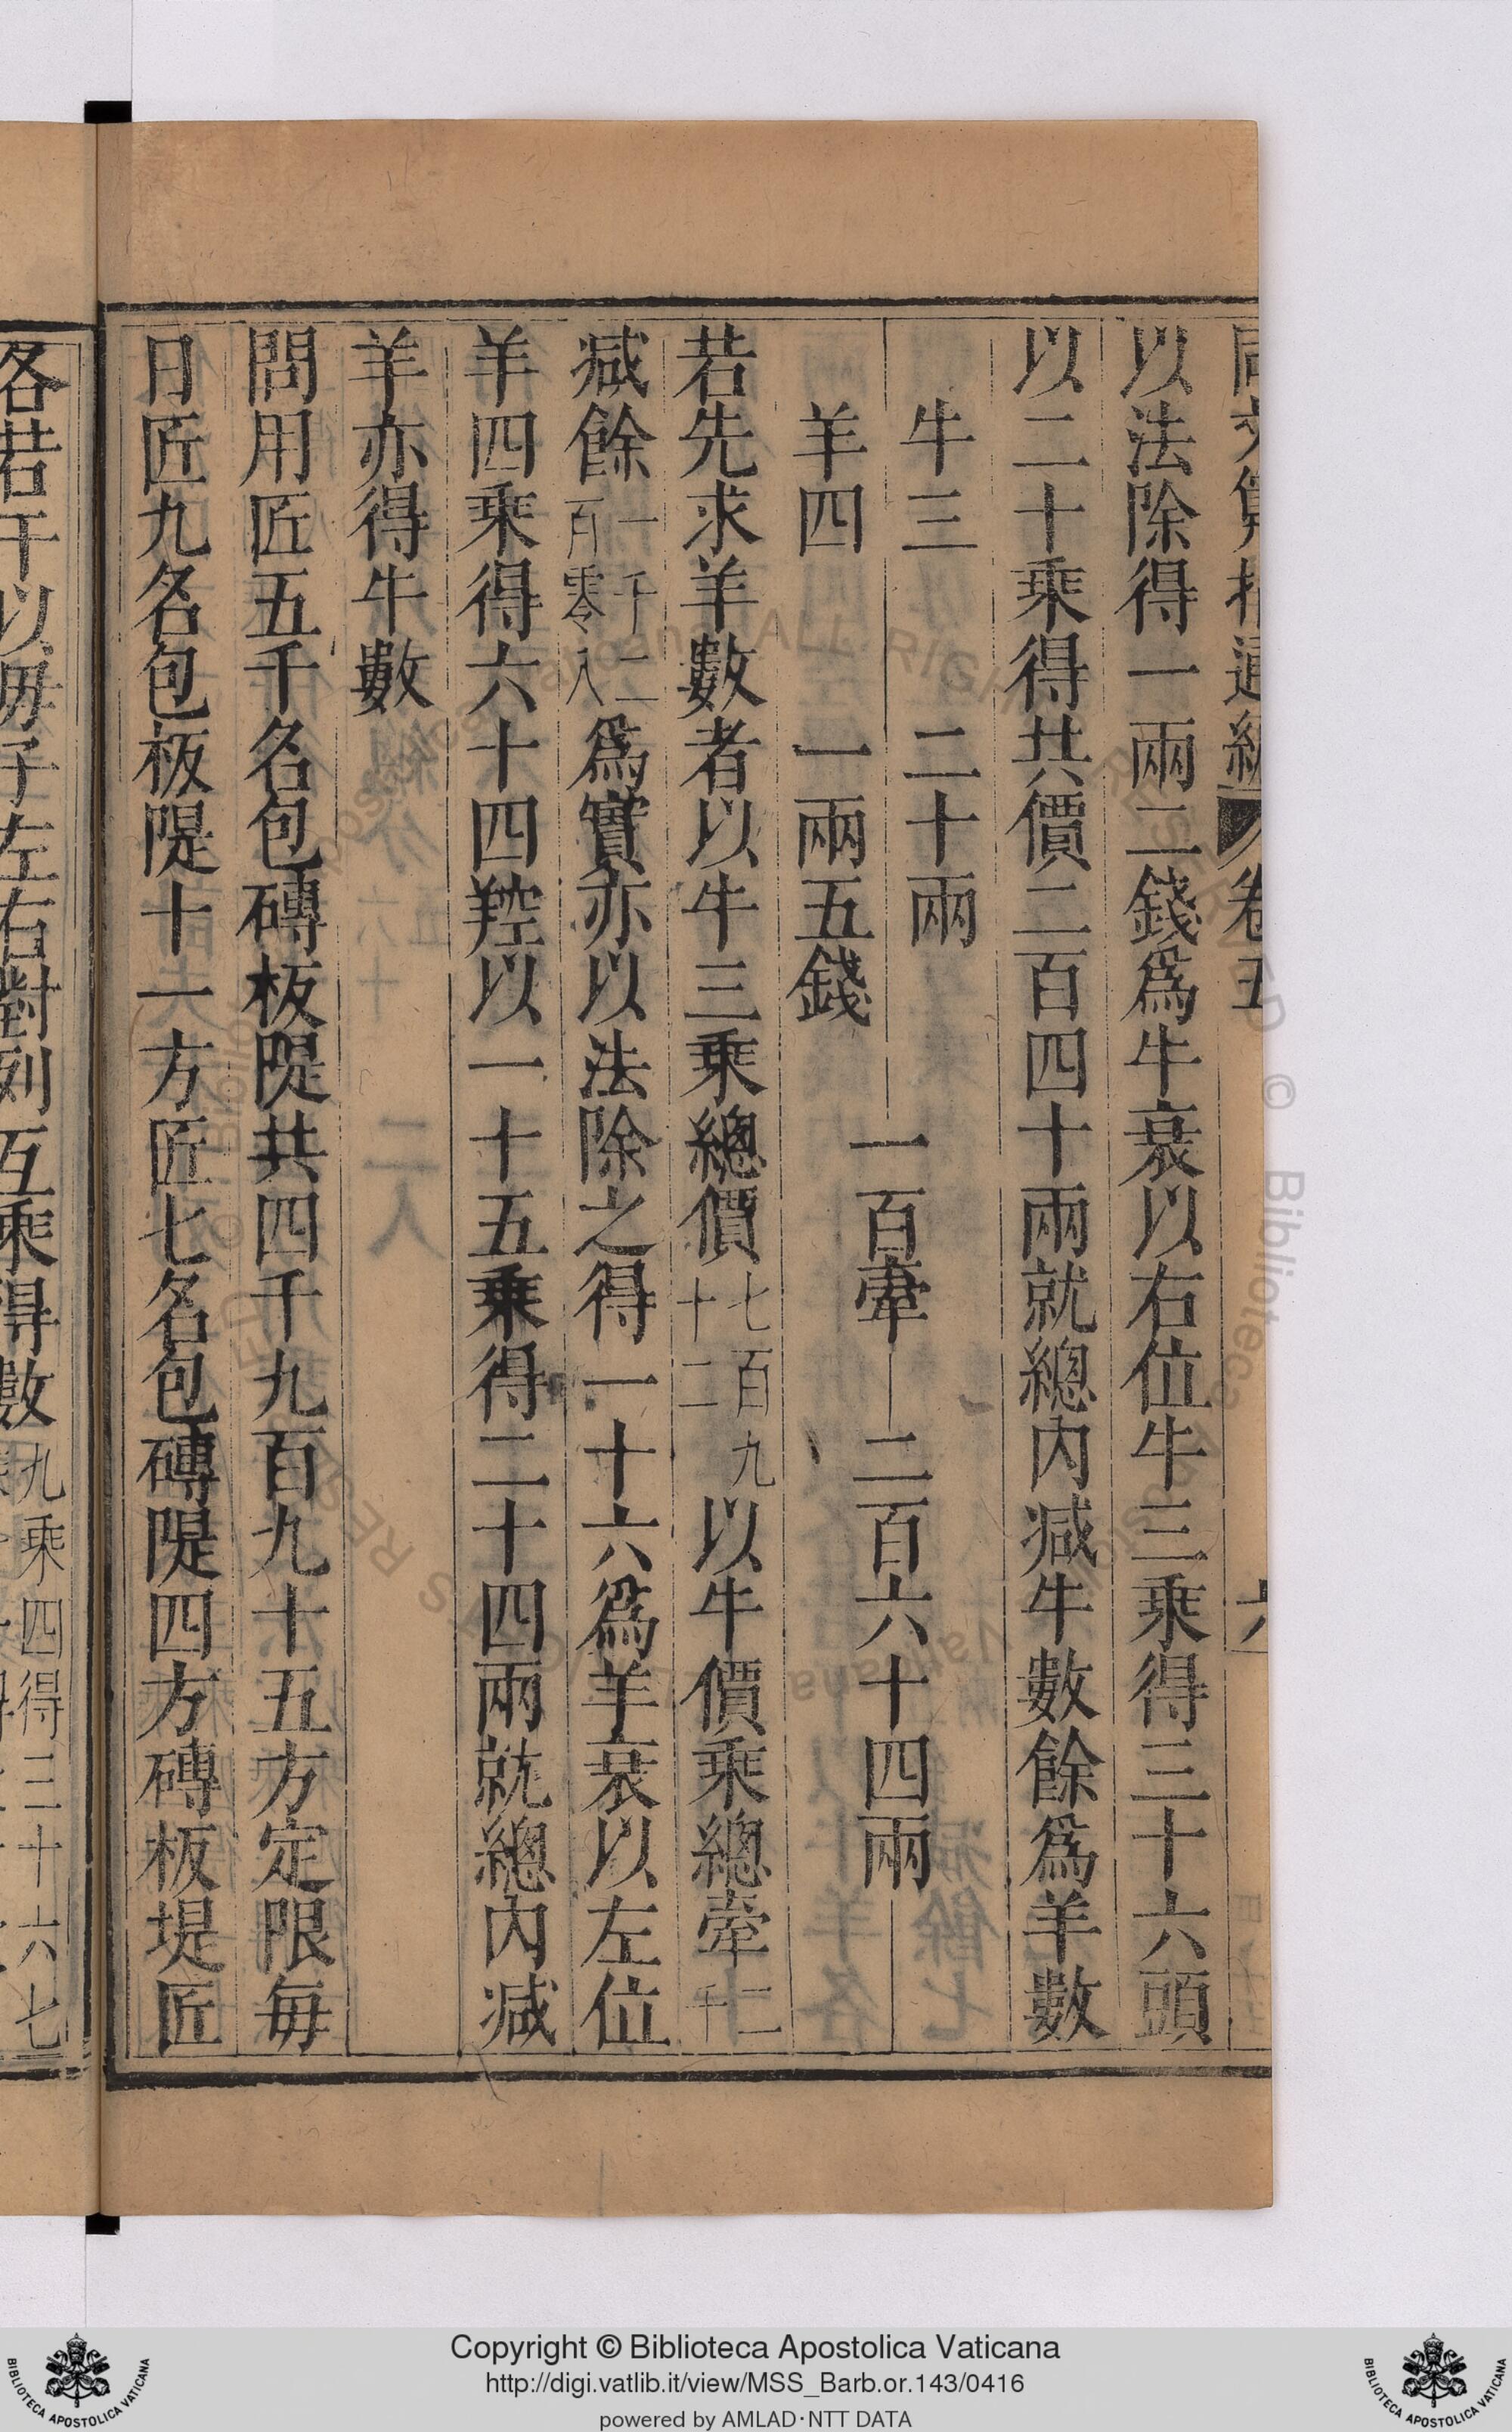 同文算指通編 卷五 六
以法除得一兩二錢爲牛衰以右位牛三乘得三十六頭
以二十乘得共價二百四十兩就總內减牛數餘爲羊數
牛三 二十兩
羊四 一兩五錢
一百牽 二百六十四兩
若先求羊數者以牛三乘總價七百九十二以牛價乘總牽二千
减餘一千二百零八爲實亦以法除之得一十六爲羊衰以左位
羊四乘得六十四羫以一十五乘得二十四兩就總內减
羊亦得牛數
問用匠五千名包磚板隄共四千九百九十五方定限每
日匠九名包板隄十一方匠七名包磚隄四方磚板堤匠
各若干以毋子左右對列互乘得數九乘四得三十六七
Copyright © Biblioteca Apostolica Vaticana
http://digi.vatlib.it/view/MSS_Barb.or.143/0416
powered by AMLAD·NTT DATA
BIBLIOTECA APOSTOLICA VATICANA
BIBLIOTECA APOSTOLICA VATICANA